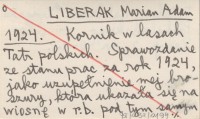 LIBERAK Marian Adam
1924. Kornik w lasach
Tatr polskich. Sprawozdanie
ze stanu prac za rok 1924,
jako uzupełnienie mej bro-
szury, która ukazała się na
wiosnę w r.b. pod tym samym